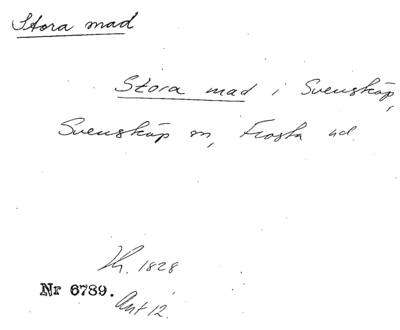 Stora mad
Stora mad i Svensköp,
Svensköp sn, Frosta hd.
Kt. 1828
Nr 6789.
Akt 12.